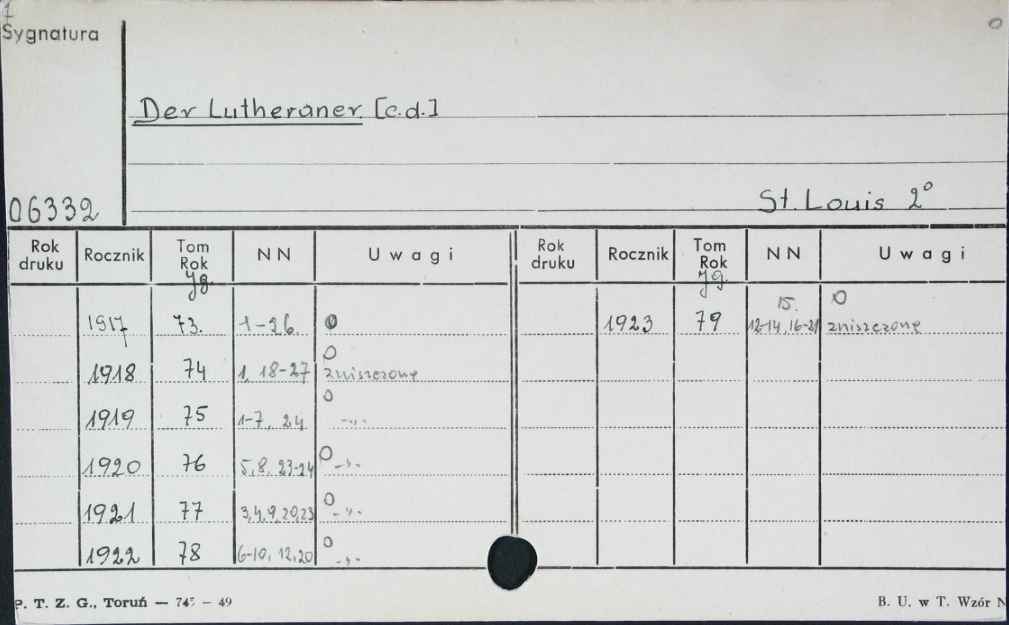 Sygnatura
Der Lutheraner [c.d.]
06332
St. Louis 2°
Rok druku Rocznik Tom Rok Jg. NN Uwagi Rok druku Rocznik Tom Rok Jg. NN Uwagi
1917 73. 1-26. 0
1918 74 1, 18-27 0 zniszczone
1919 75 1-7, 24 0 -"-
1920 76 5, 8, 23-24 0 -"-
1921 77 3, 4, 9, 20, 23 0 -"-
1922 78 6-10, 12, 20 0 -"-
1923 79 12-14, 15. 16-21 0 zniszczone
P. T. Z. G., Toruń — 745 — 49
B. U. w T. Wzór N